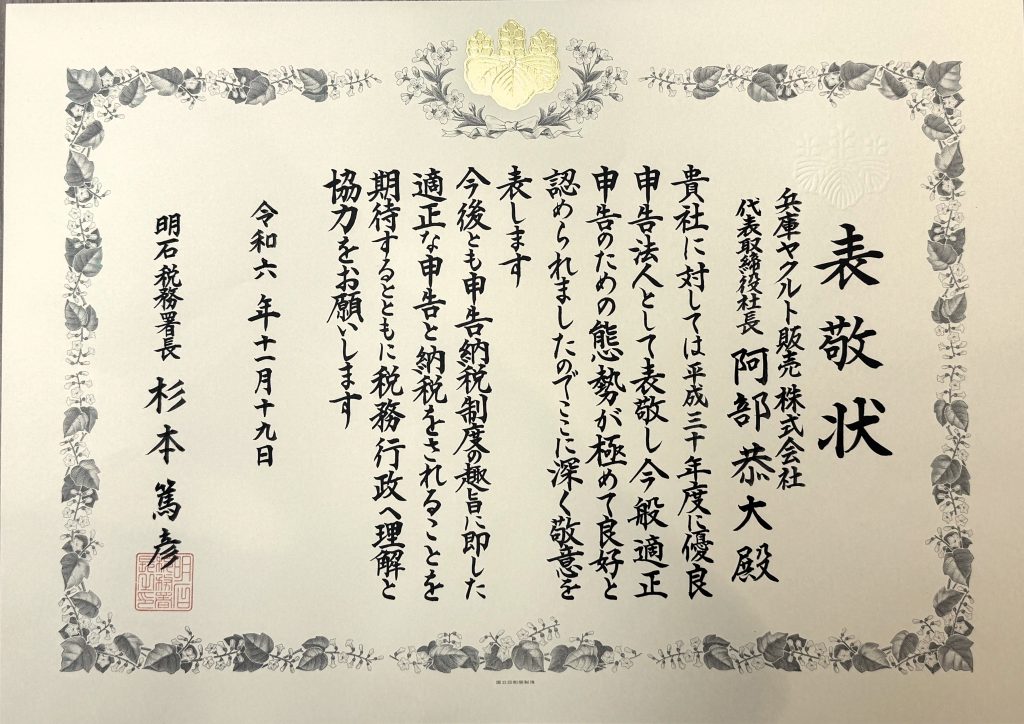 表敬状
兵庫ヤクルト販売株式会社
代表取締役社長 阿部恭大殿
貴社に対しては平成三十年度に優良
申告法人として表敬し今般適正
申告のための態勢が極めて良好と
認められましたのでここに深く敬意を
表します
今後とも申告納税制度の趣旨に即した
適正な申告と納税をされることを
期待するとともに税務行政へ理解と
協力をお願いします
令和六年十一月十九日
明石税務署長 杉本篤彦
国立印刷局製造